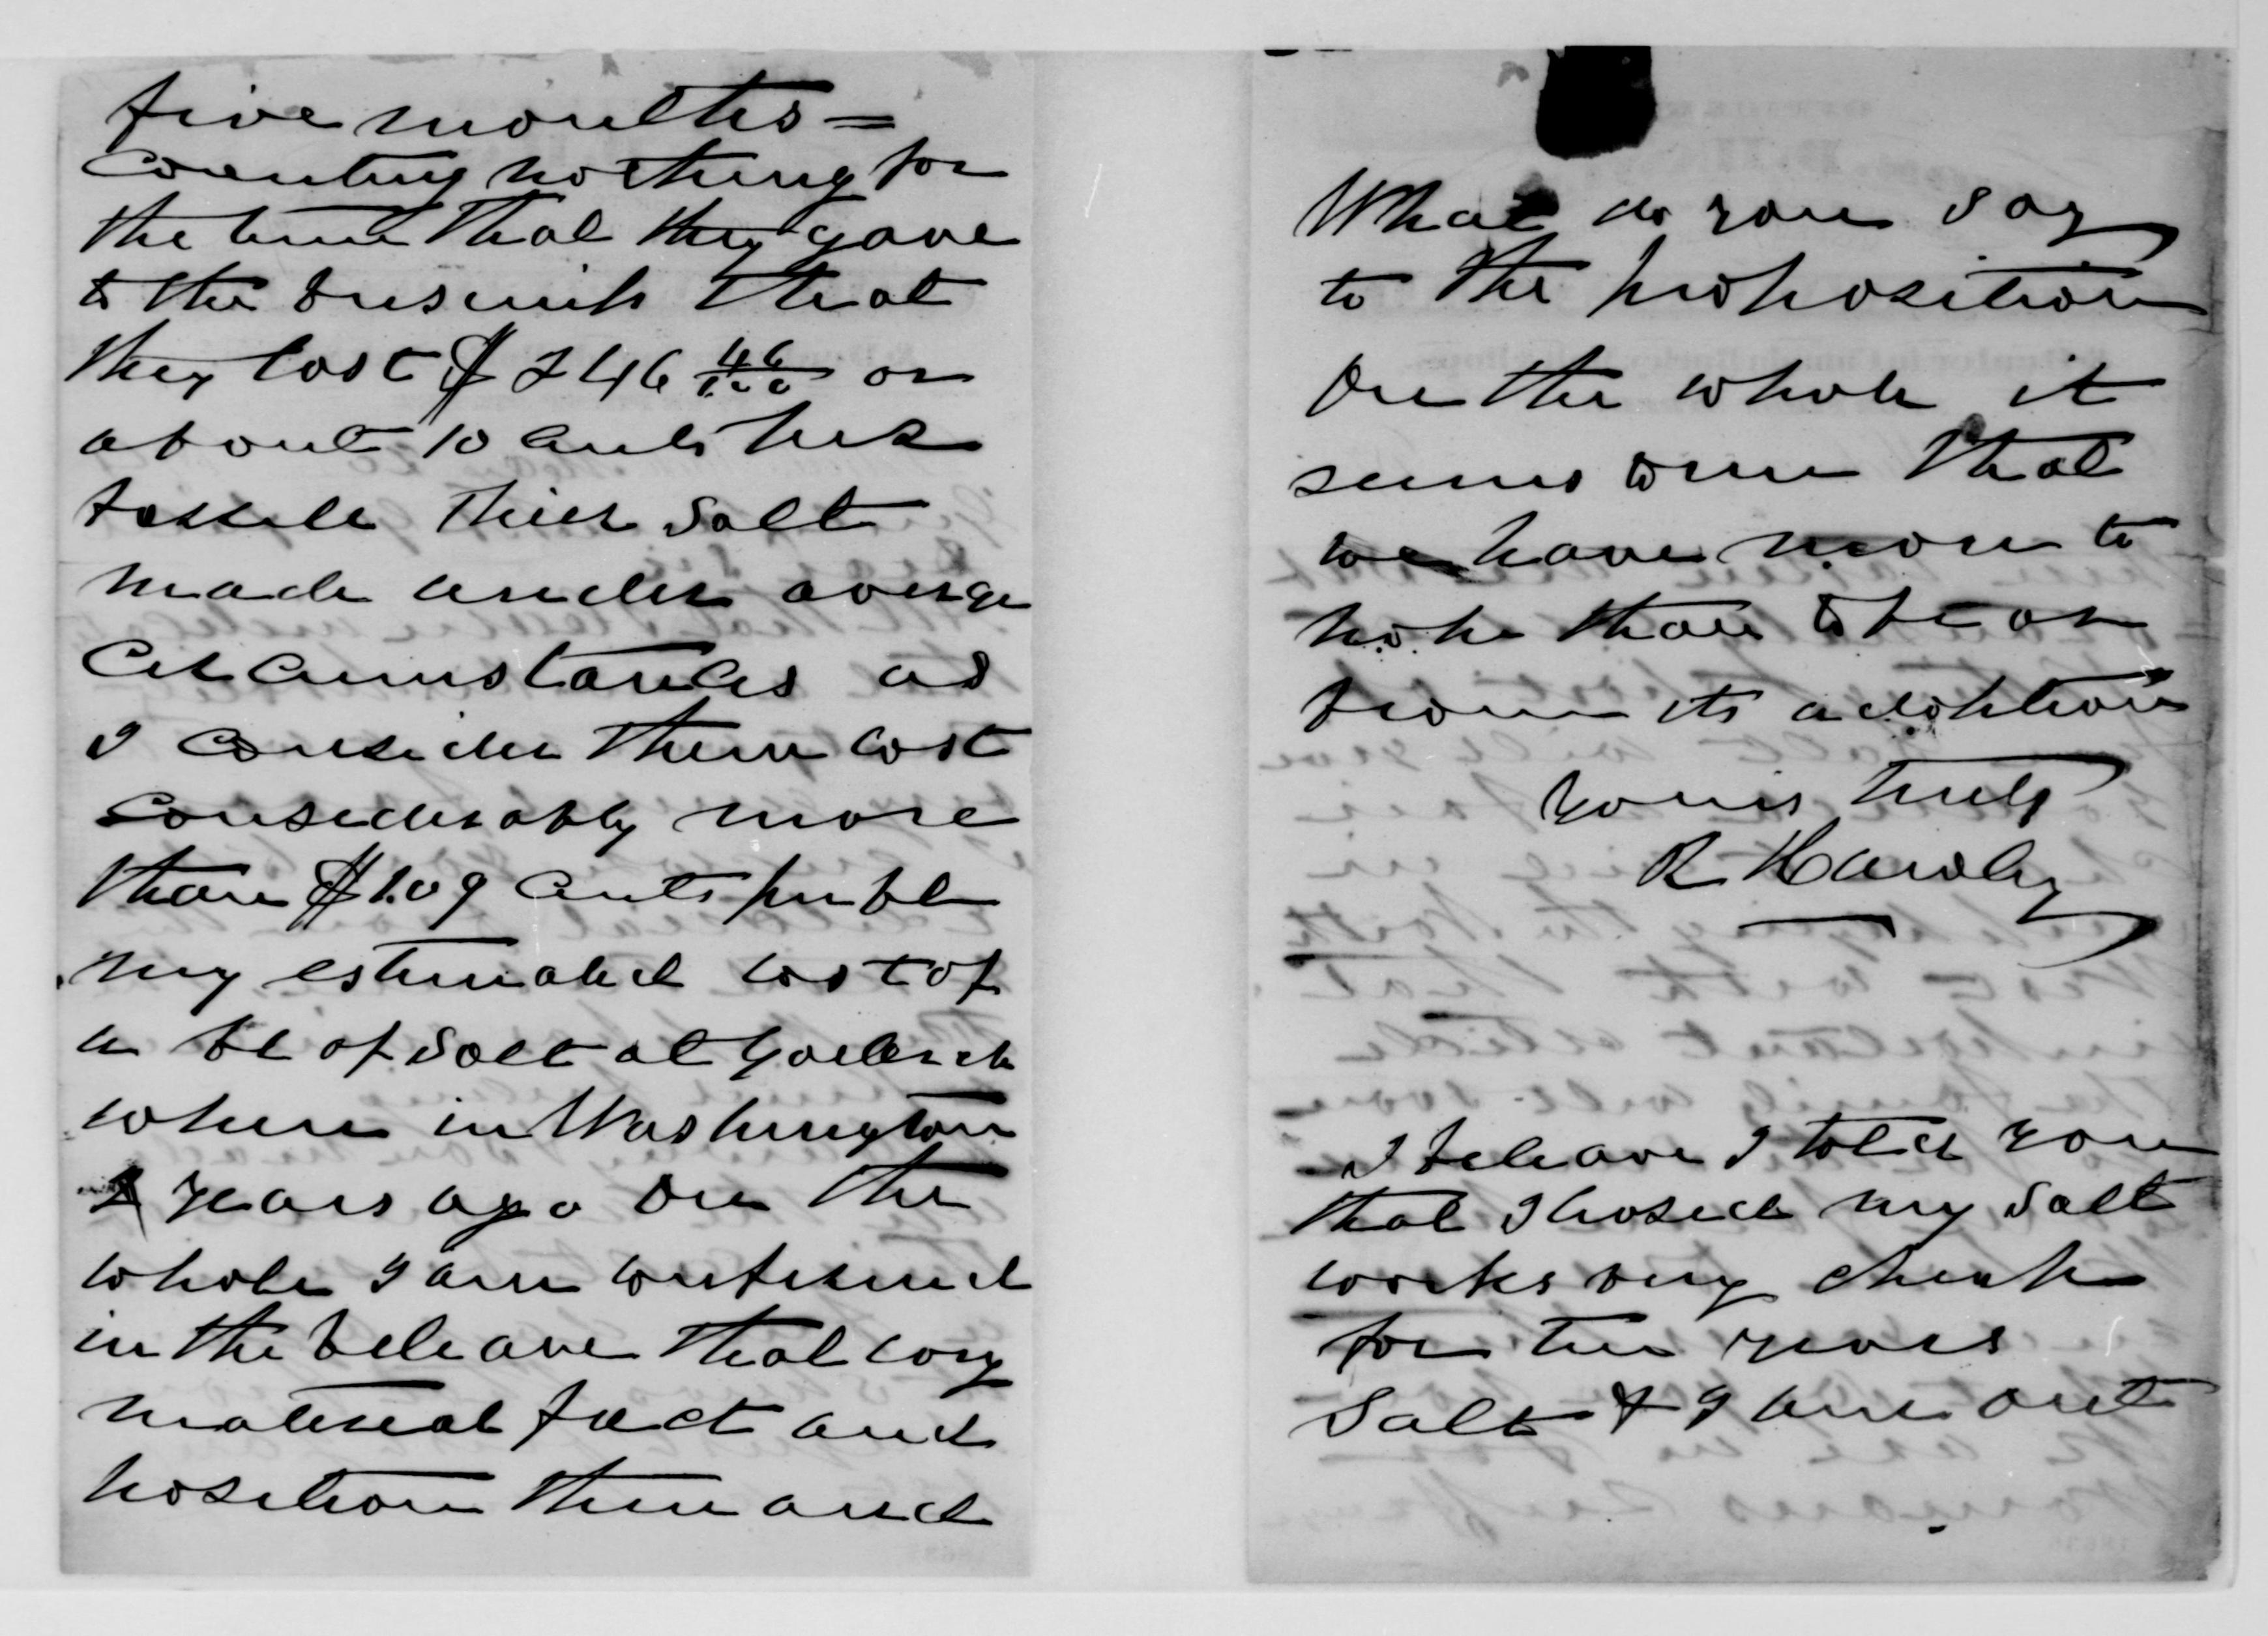 five months =
counting nothing for
the time that they gave
to the business that
they lost $246 46/100 or
about 10 cents per
barrele Their Salt
made under averge
circumstances as
I consider them cost
considerably more
than $1.09 cents per bl
my estimated cost of
a bl of Salt at Goderich
when in Washington
2 years ago On the
whole I am confirmed
in the beleave that evry
material fact and
position then and
What do you say
to the proposition
On the whole it
seems to me that
we have more to
hope than to fear
from its adoption
Yours truly
R Hawley
I beleave I told you
that I leased my Salt
works very cheap
for two years
Salt & I am out